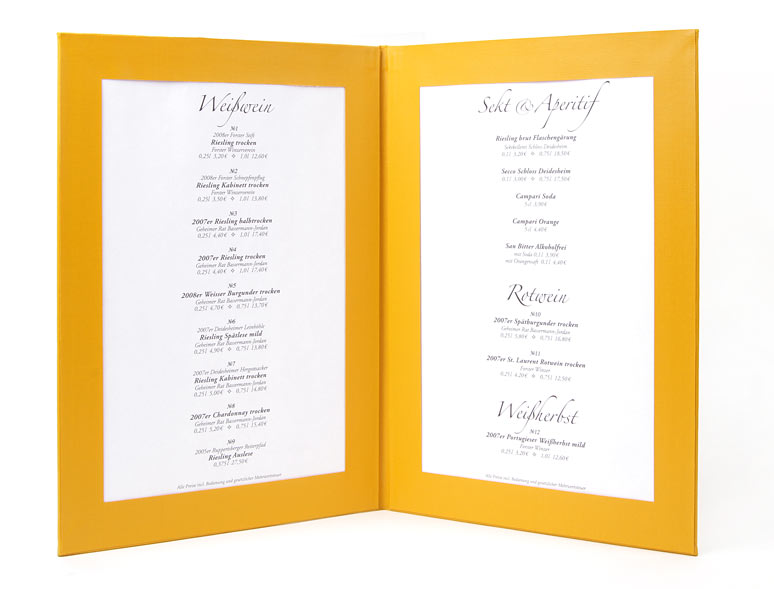 Weißwein
№1
2008er Forster Stift
Riesling trocken
Forster Winzerverein
0,25l 3,20€ ❖ 1,0l 12,60€
№2
2008er Forster Schnepfenpflug
Riesling Kabinett trocken
Forster Winzerverein
0,25l 3,50€ ❖ 1,0l 13,80€
№3
2007er Riesling halbtrocken
Geheimer Rat Bassermann-Jordan
0,25l 4,40€ ❖ 1,0l 17,40€
№4
2007er Riesling trocken
Geheimer Rat Bassermann-Jordan
0,25l 4,40€ ❖ 1,0l 17,40€
№5
2008er Weisser Burgunder trocken
Geheimer Rat Bassermann-Jordan
0,25l 4,70€ ❖ 0,75l 13,70€
№6
2007er Deidesheimer Leinhöhle
Riesling Spätlese mild
Geheimer Rat Bassermann-Jordan
0,25l 4,90€ ❖ 0,75l 13,80€
№7
2007er Deidesheimer
Riesling Kabinett trocken
Geheimer Rat Bassermann-Jordan
0,25l 5,00€ ❖ 0,75l 14,80€
№8
2007er Chardonnay trocken
Geheimer Rat Bassermann-Jordan
0,25l 5,20€ ❖ 0,75l 15,40€
№9
2005er Ruppertsberger Reiterpfad
Riesling Auslese
0,375l 27,50€
Alle Preise incl. Bedienung und gesetzlicher Mehrwertsteuer
Sekt & Aperitif
Riesling brut Flaschengärung
Sektkellerei Schloss Deidesheim
0,1l 3,20€ ❖ 0,75l 18,50€
Secco Schloss Deidesheim
0,1l 3,00€ ❖ 0,75l 17,50€
Campari Soda
5cl 3,90€
Campari Orange
5cl 4,40€
San Bitter Alkoholfrei
mit Soda 0,1l 3,90€
mit Orangensaft 0,1l 4,40€
Rotwein
№10
2007er Spätburgunder trocken
Geheimer Rat Bassermann-Jordan
0,25l 5,80€ ❖ 0,75l 16,80€
№11
2007er St. Laurent Rotwein trocken
Forster Winzer
0,25l 4,20€ ❖ 0,75l 12,50€
Weißherbst
№12
2007er Portugieser Weißherbst mild
Forster Winzer
0,25l 3,20€ ❖ 1,0l 12,60€